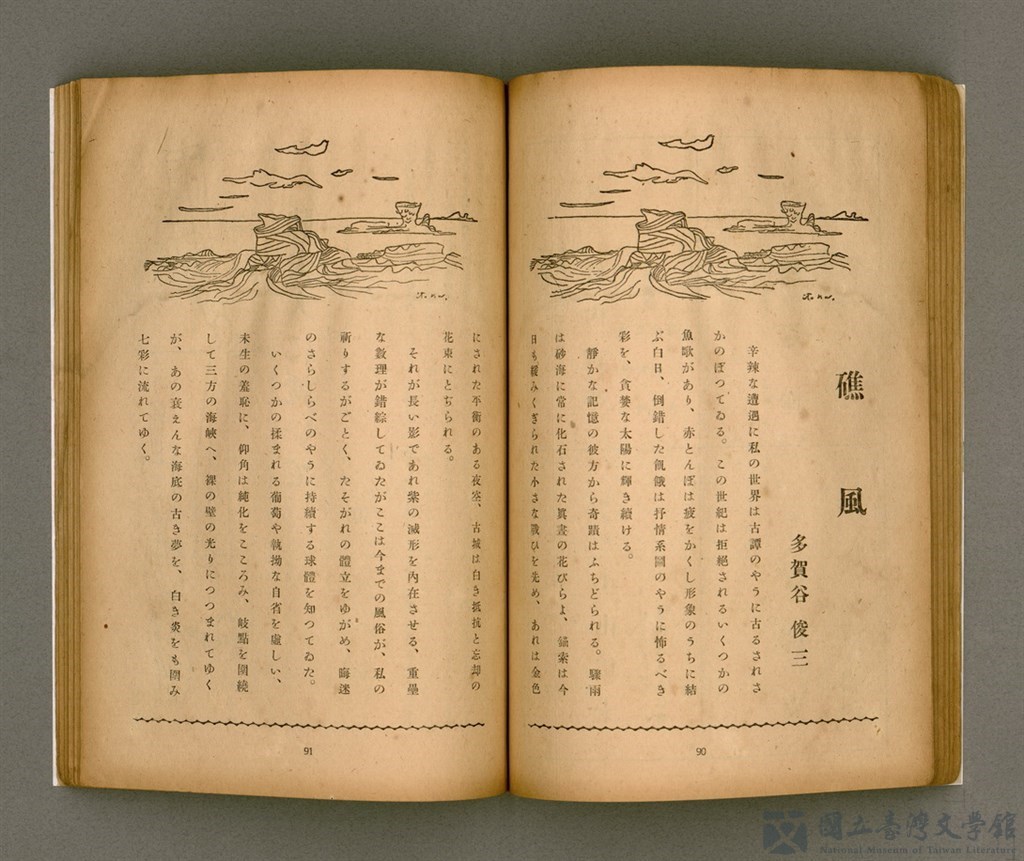 礁風
多賀谷俊三
辛辣な遭遇に私の世界は古譚のやうに古るされさ
かのぼつてゐる。この世紀は拒絕されるいくつかの
魚歌があり、赤とんぼは疲をかくし形象のうちに結
ぶ白日、倒錯した飢餓は抒情系圖のやうに怖るべき
彩を、貪婪な太陽に輝き續ける。
靜かな記憶の彼方から奇蹟はふちどられる。驟雨
は砂海に常に化石された眞晝の花びらよ、錨索は今
日も緩みくぎられた小さな戰ひを先め、あれは金色
90
にされた平衡のある夜空、古城は白き抵抗と忘却の
花束にとぢられる。
それが長い影であれ紫の減形を內在させる、重疊
な數理が錯綜してゐたがここは今までの風俗が、私の
祈りするがごとく、たそがれの體立をゆがめ、晦迷
のさらしらべのやうに持續する球體を知つてゐた。
いくつかの揉まれる葡萄や執拗な自省を虛しい、
未生の羞恥に、仰角は純化をこころみ、岐點を圍繞
して三方の海峽へ、裸の壁の光りにつつまれてゆく
が、あの衰えんな海底の古き夢を、白き炎をも圍み
七彩に流れてゆく。
91
國立臺灣文學館
National Museum of Taiwan Literature